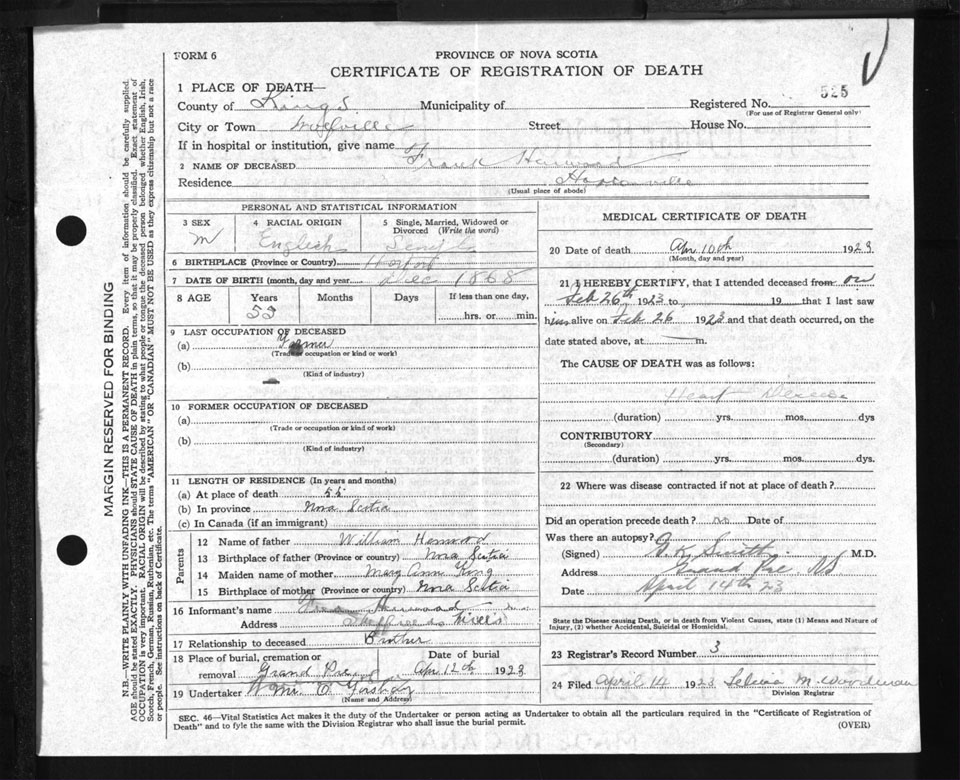 FORM 6
PROVINCE OF NOVA SCOTIA
CERTIFICATE OF REGISTRATION OF DEATH
1 PLACE OF DEATH—
County of Kings Municipality of Registered No. 525
(For use of Registrar General only)
City or Town Wolfville Street House No.
If in hospital or institution, give name
2 NAME OF DECEASED Frank
Residence Hortonville
(Usual place of abode)
PERSONAL AND STATISTICAL INFORMATION
3 SEX M
4 RACIAL ORIGIN English
5 Single, Married, Widowed or Divorced (Write the word) Single
6 BIRTHPLACE (Province or Country)
7 DATE OF BIRTH (month, day and year) Dec 1868
8 AGE Years Months Days If less than one day,
53 hrs. or min.
9 LAST OCCUPATION OF DECEASED
(a) Farmer
(Trade or occupation or kind or work)
(b)
(Kind of industry)
10 FORMER OCCUPATION OF DECEASED
(a)
(Trade or occupation or kind of work)
(b)
(Kind of industry)
11 LENGTH OF RESIDENCE (In years and months)
(a) At place of death
(b) In province Nova Scotia
(c) In Canada (if an immigrant)
Parents
12 Name of father William
13 Birthplace of father (Province or country) Nova Scotia
14 Maiden name of mother Mary Ann King
15 Birthplace of mother (Province or country) Nova Scotia
16 Informant's name
Address Sheffields Mills
17 Relationship to deceased Brother
18 Place of burial, cremation or Date of burial
removal Grand Pre Apr 12th 1923
19 Undertaker
(Name and Address)
MEDICAL CERTIFICATE OF DEATH
20 Date of death Apr 10th 1923
(Month, day and year)
21 I HEREBY CERTIFY, that I attended deceased from on
Feb 26th 1923 to 19 that I last saw
him alive on Feb 26 1923 and that death occurred, on the
date stated above, at m.
The CAUSE OF DEATH was as follows:
Heart Disease
(duration) yrs. mos. dys
CONTRIBUTORY
(Secondary)
(duration) yrs. mos. dys.
22 Where was disease contracted if not at place of death?
Did an operation precede death? no Date of
Was there an autopsy?
(Signed) O.K. Smith M.D.
Address Grand Pre NS
Date April 14th 23
State the Disease causing Death, or in death from Violent Causes, state (1) Means and Nature of
Injury, (2) whether Accidental, Suicidal or Homicidal.
23 Registrar's Record Number 3
24 Filed April 14 1923 M. Woodman
Division Registrar
SEC. 46—Vital Statistics Act makes it the duty of the Undertaker or person acting as Undertaker to obtain all the particulars required in the "Certificate of Registration of
Death" and to fyle the same with the Division Registrar who shall issue the burial permit.
(OVER)
MARGIN RESERVED FOR BINDING
N.B.—WRITE PLAINLY WITH UNFADING INK—THIS IS A PERMANENT RECORD. Every item of information should be carefully supplied.
AGE should be stated EXACTLY. PHYSICIANS should STATE CAUSE OF DEATH in plain terms, so that it may be properly classified. Exact statement of
OCCUPATION is very important. RACIAL ORIGIN will be described by stating to what people or tongue the deceased person belonged whether English, Irish,
Scotch, French, German, Russian, Ruthenian, etc. The terms "AMERICAN" OR "CANADIAN" MUST NOT BE USED as they express citizenship but not a race
or people. See instructions on back of Certificate.